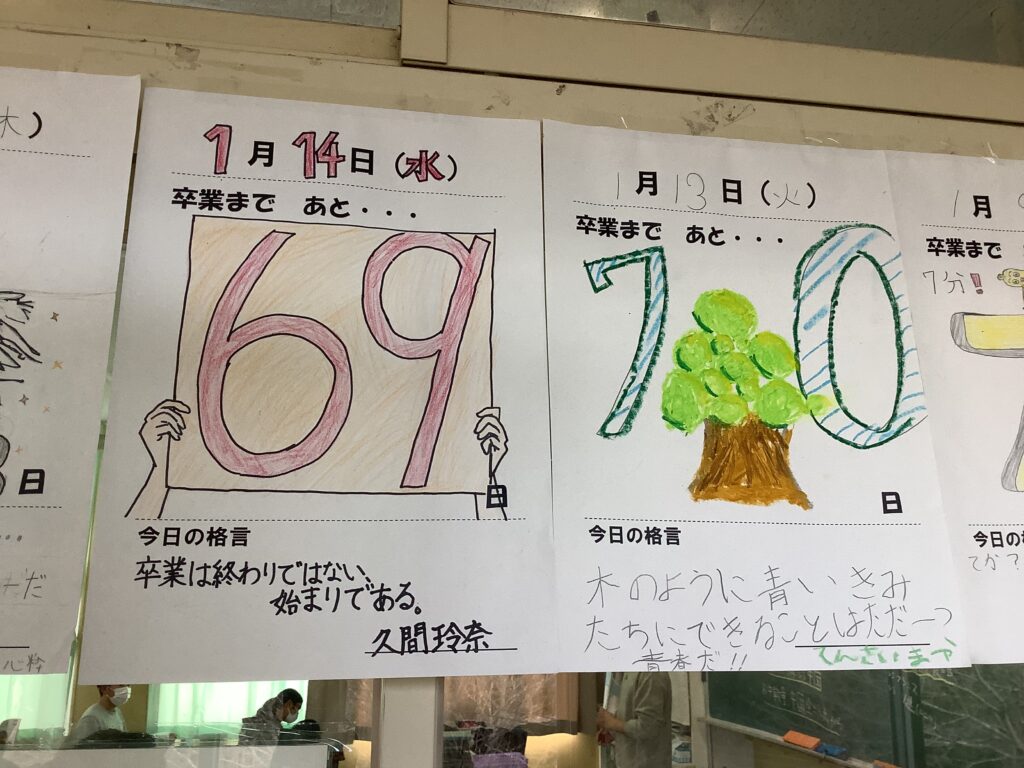 木）
日
だ
1月14日（水）
卒業まで　あと・・・
69
日
今日の格言
卒業は終わりではない、
始まりである。
久間玲奈
1月13日（火）
卒業まで　あと・・・
70
日
今日の格言
木のように青いきみ
たちにできなことはただ一つ
青春だ!!
1月9
卒業まで
7分!
今日の
てか?